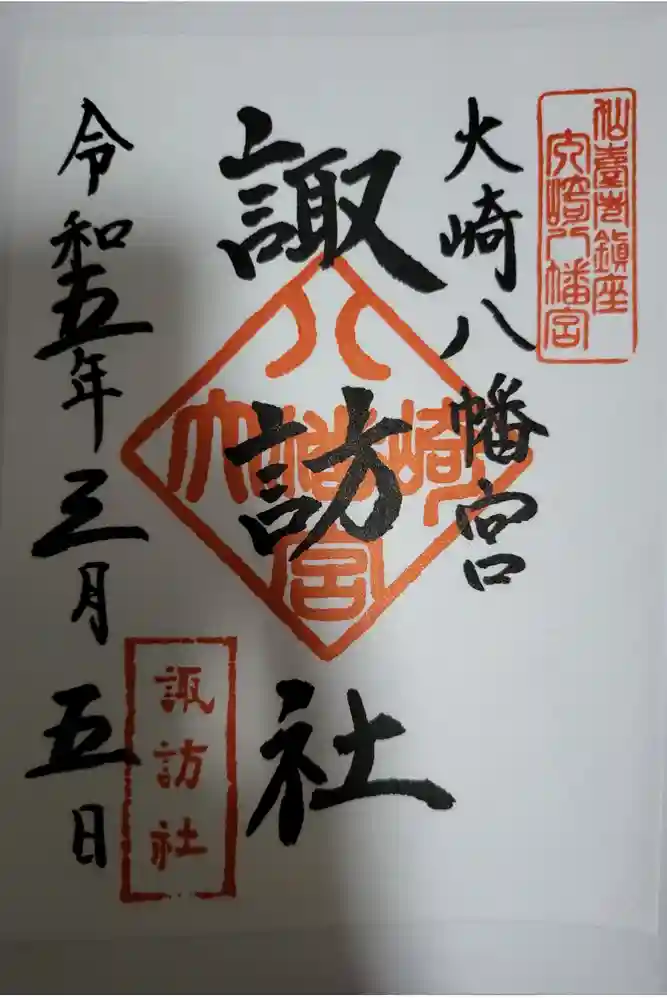 仙臺市鎮座
大崎八幡宮
大崎八幡宮
諏訪社
八幡宮
大崎
諏訪社
令和五年三月五日